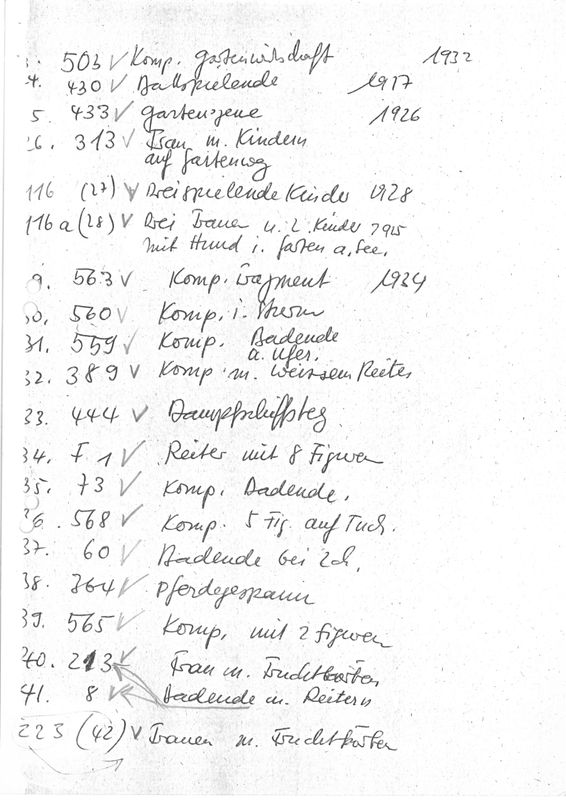 3. 503 ✓ Komp. Gartenwirtschaft 1932
4. 430 ✓ Ballspielende 1917
5. 433 ✓ Gartenszene 1926
26. 313 ✓ Frau m. Kindern
auf Gartenweg
116 (27) ✓ Drei spielende Kinder 1928
116a (28) ✓ Drei Frauen u. 2 Kinder
mit Hund i. Garten a. See.
9. 563 ✓ Komp. Fragment 1934
30. 560 ✓ Komp. i.
31. 559 ✓ Komp. Badende
a. Ufer.
32. 389 ✓ Komp. m. weissem Reiter
33. 444 ✓ Dampfschiffsteg
34. F 1 ✓ Reiter mit 8 Figuren
35. 73 ✓ Komp. Badende.
36. 568 ✓ Komp. 5 Fig. auf Tuch.
37. 60 ✓ Badende bei
38. 364 ✓ Pferdegespann
39. 565 ✓ Komp. mit 2 Figuren
40. 213 ✓ Frau m. Fruchtkörben
41. 8 ✓ Badende m. Reitern
223 (42) ✓ Frauen m. Fruchtkörben